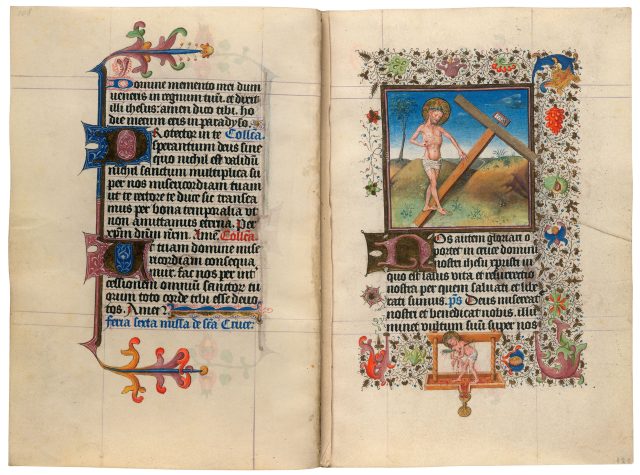 Domine memento mei dum
veneris in regnum tuū. et dixit
illi ihesus: amen dico tibi. ho
die mecum eris in paradyso.
Protector in te Collcā.
sperantium deus sine
quo nichil est validū
nichil sanctum multiplica su
per nos misericordiam tuam
ut te rectore te duce sic transea
mus per bona temporalia vt
non amittamus eterna. Per
xp̄m dn̄m nr̄m. Amē. Collcā.
tuam domine mise
ricordiam consequa
mur. fac nos per int̄
cessionem omniū sanctor
quorum toto corde tibi esse deuo
tos. Amen
feria sexta missa de scā Cruce:
Nos autem gloriari o
portet in cruce domini
nostri ihesu xpristi in
quo est salus vita et resurrectio
nostra per quem saluati et libe
rati sumus. ps̄ Deus misereat
nostri et benedicat nobis. illu
minet vultum suū super nos